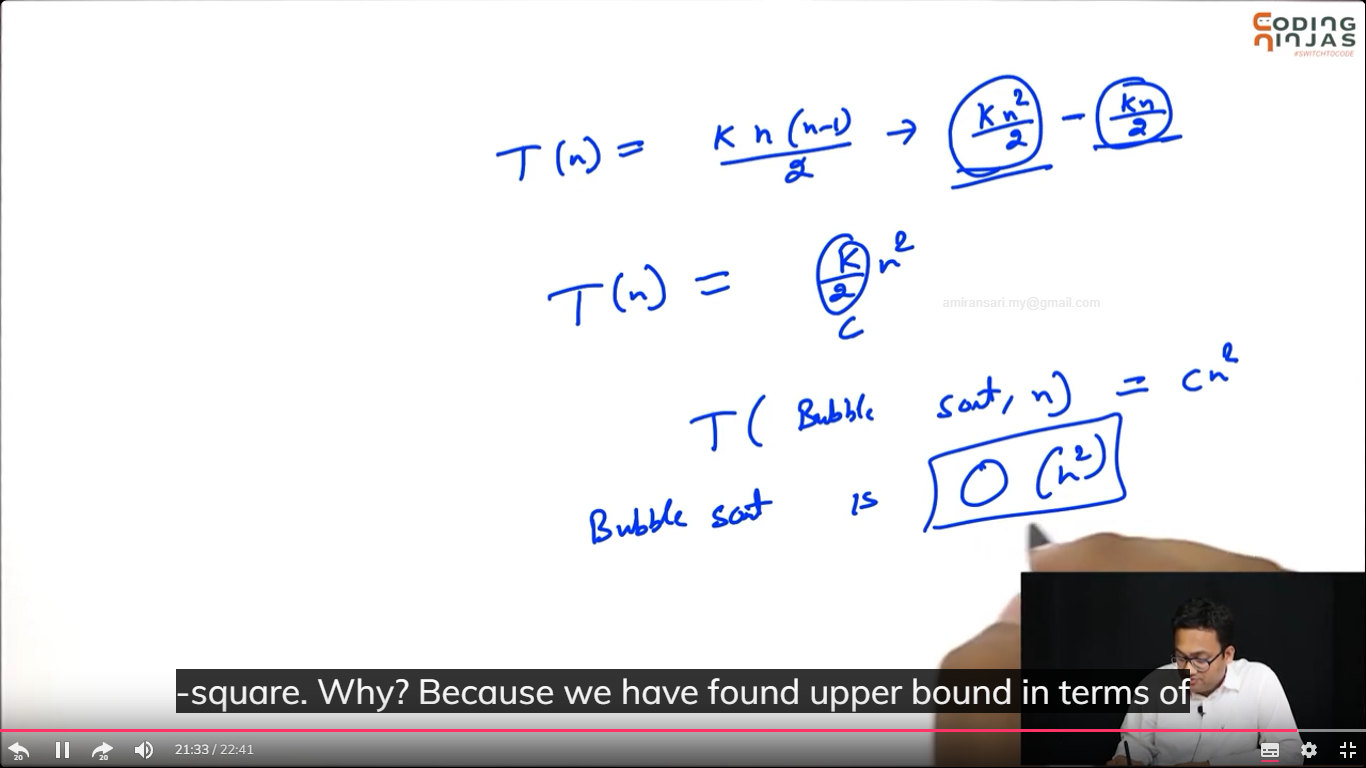 CODING
NINJAS
#SWITCHTOCODE
T(n) = K n (n-1) / 2 → Kn² / 2 - Kn / 2
T(n) = K/2 n²
C
amiransari.my@gmail.com
T( Bubble sort, n) = cn²
Bubble sort is O (n²)
-square. Why? Because we have found upper bound in terms of
20
20
21:33 / 22:41